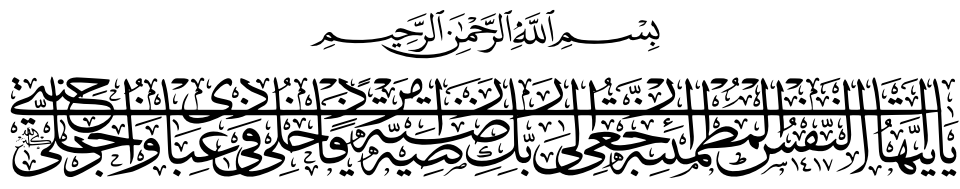 بِسْمِ اللَّهِ الرَّحْمَٰنِ الرَّحِيمِ
يَا أَيَّتُهَا النَّفْسُ الْمُطْمَئِنَّةُ ارْجِعِي إِلَىٰ رَبِّكِ رَاضِيَةً مَرْضِيَّةً فَادْخُلِي فِي عِبَادِي وَادْخُلِي جَنَّتِي ١٤١٧